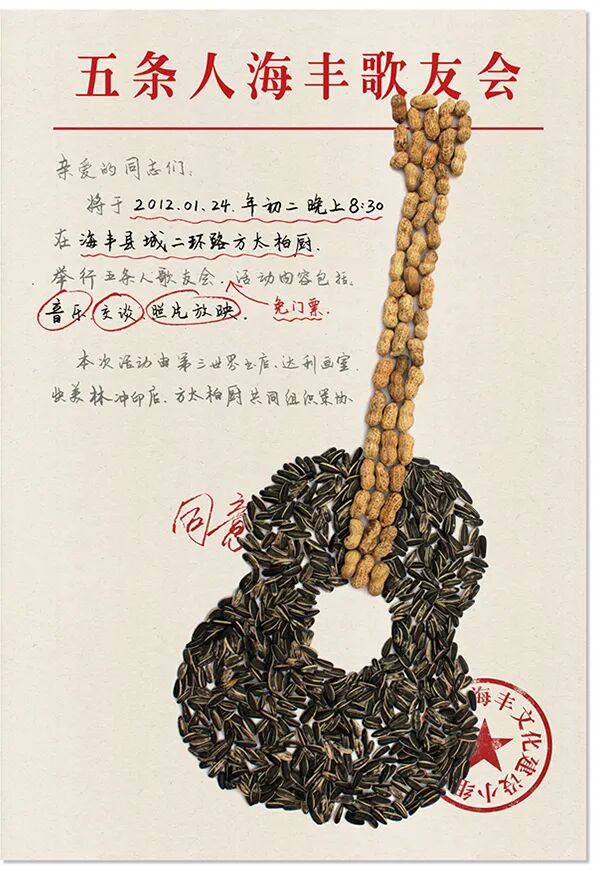 五条人海丰歌友会
亲爱的同志们:
将于 2012.01.24.年初二晚上8:30
在 海丰县城二环路方太柏厨.
举行五条人歌友会.活动内容包括:
音乐 交谈 照片放映.
免门票.
本次活动由第三世界书店、达利画室、
快美林冲印店、方太柏厨共同组织策办.
同意
海丰文化建设小组